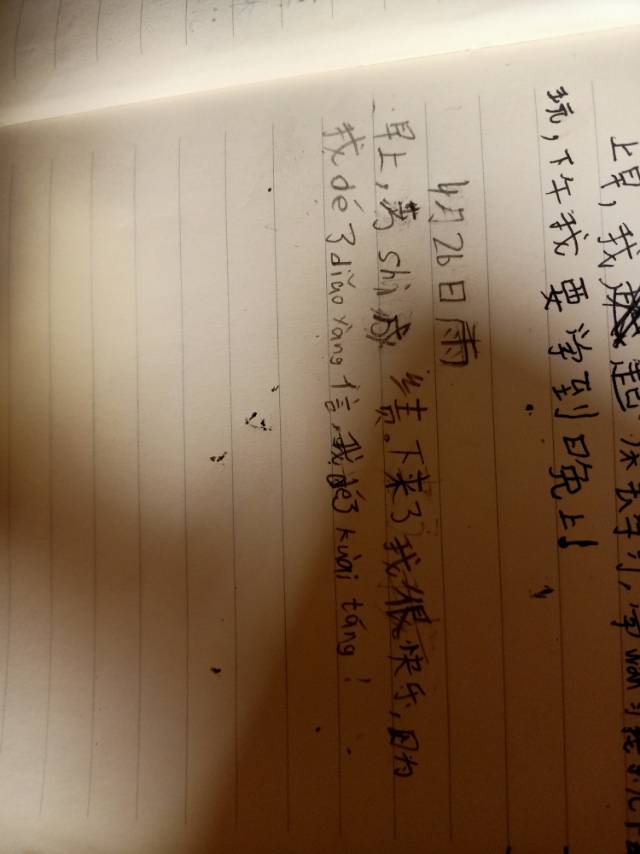 上早，我起床去学习，学wan
玩，下午我要学到晚上！
4月26日雨
早上，考shì成绩下来了我很快乐，因为
我dé3diǎo yàng信，我dé3kuài táng！